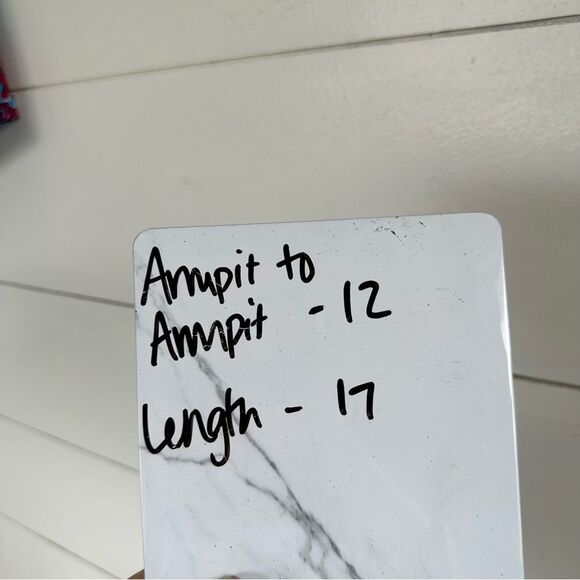 Armpit to
Armpit - 12
Length - 17